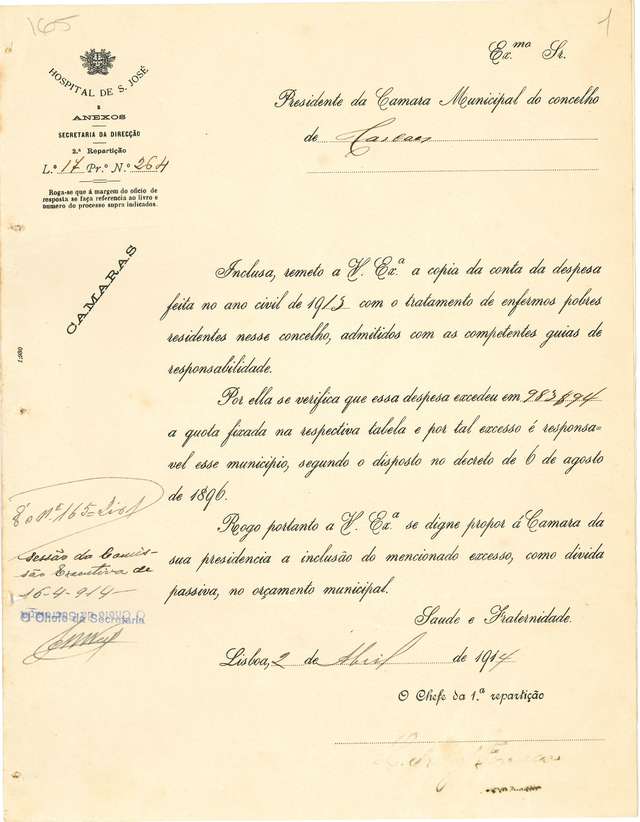 165
1
HOSPITAL DE S. JOSÉ
E
ANEXOS
SECRETARIA DA DIRECÇÃO
2.ª Repartição
L.º 17 Pr.º N.º 264
Roga-se que á margem do oficio de
resposta se faça referencia ao livro e
numero do processo supra indicados.
CAMARAS
Ex.mo Sr.
Presidente da Camara Municipal do concelho
de Cascaes
Inclusa, remeto a V. Ex.ª a copia da conta da despesa
feita no ano civil de 1913 com o tratamento de enfermos pobres
residentes nesse concelho, admitidos com as competentes guias de
responsabilidade.
Por ella se verifica que essa despesa excedeu em 983$94
a quota fixada na respectiva tabela e por tal excesso é responsa-
vel esse municipio, segundo o disposto no decreto de 6 de agosto
de 1896.
Rogo portanto a V. Ex.ª se digne propor á Camara da
sua presidencia a inclusão do mencionado excesso, como divida
passiva, no orçamento municipal.
Saude e Fraternidade.
Lisboa, 2 de Abril de 1914
O Chefe da 1.ª repartição
É o Nº 165
sessão da Comis-
são Executiva de
16-4-914
O Chefe da Secretaria